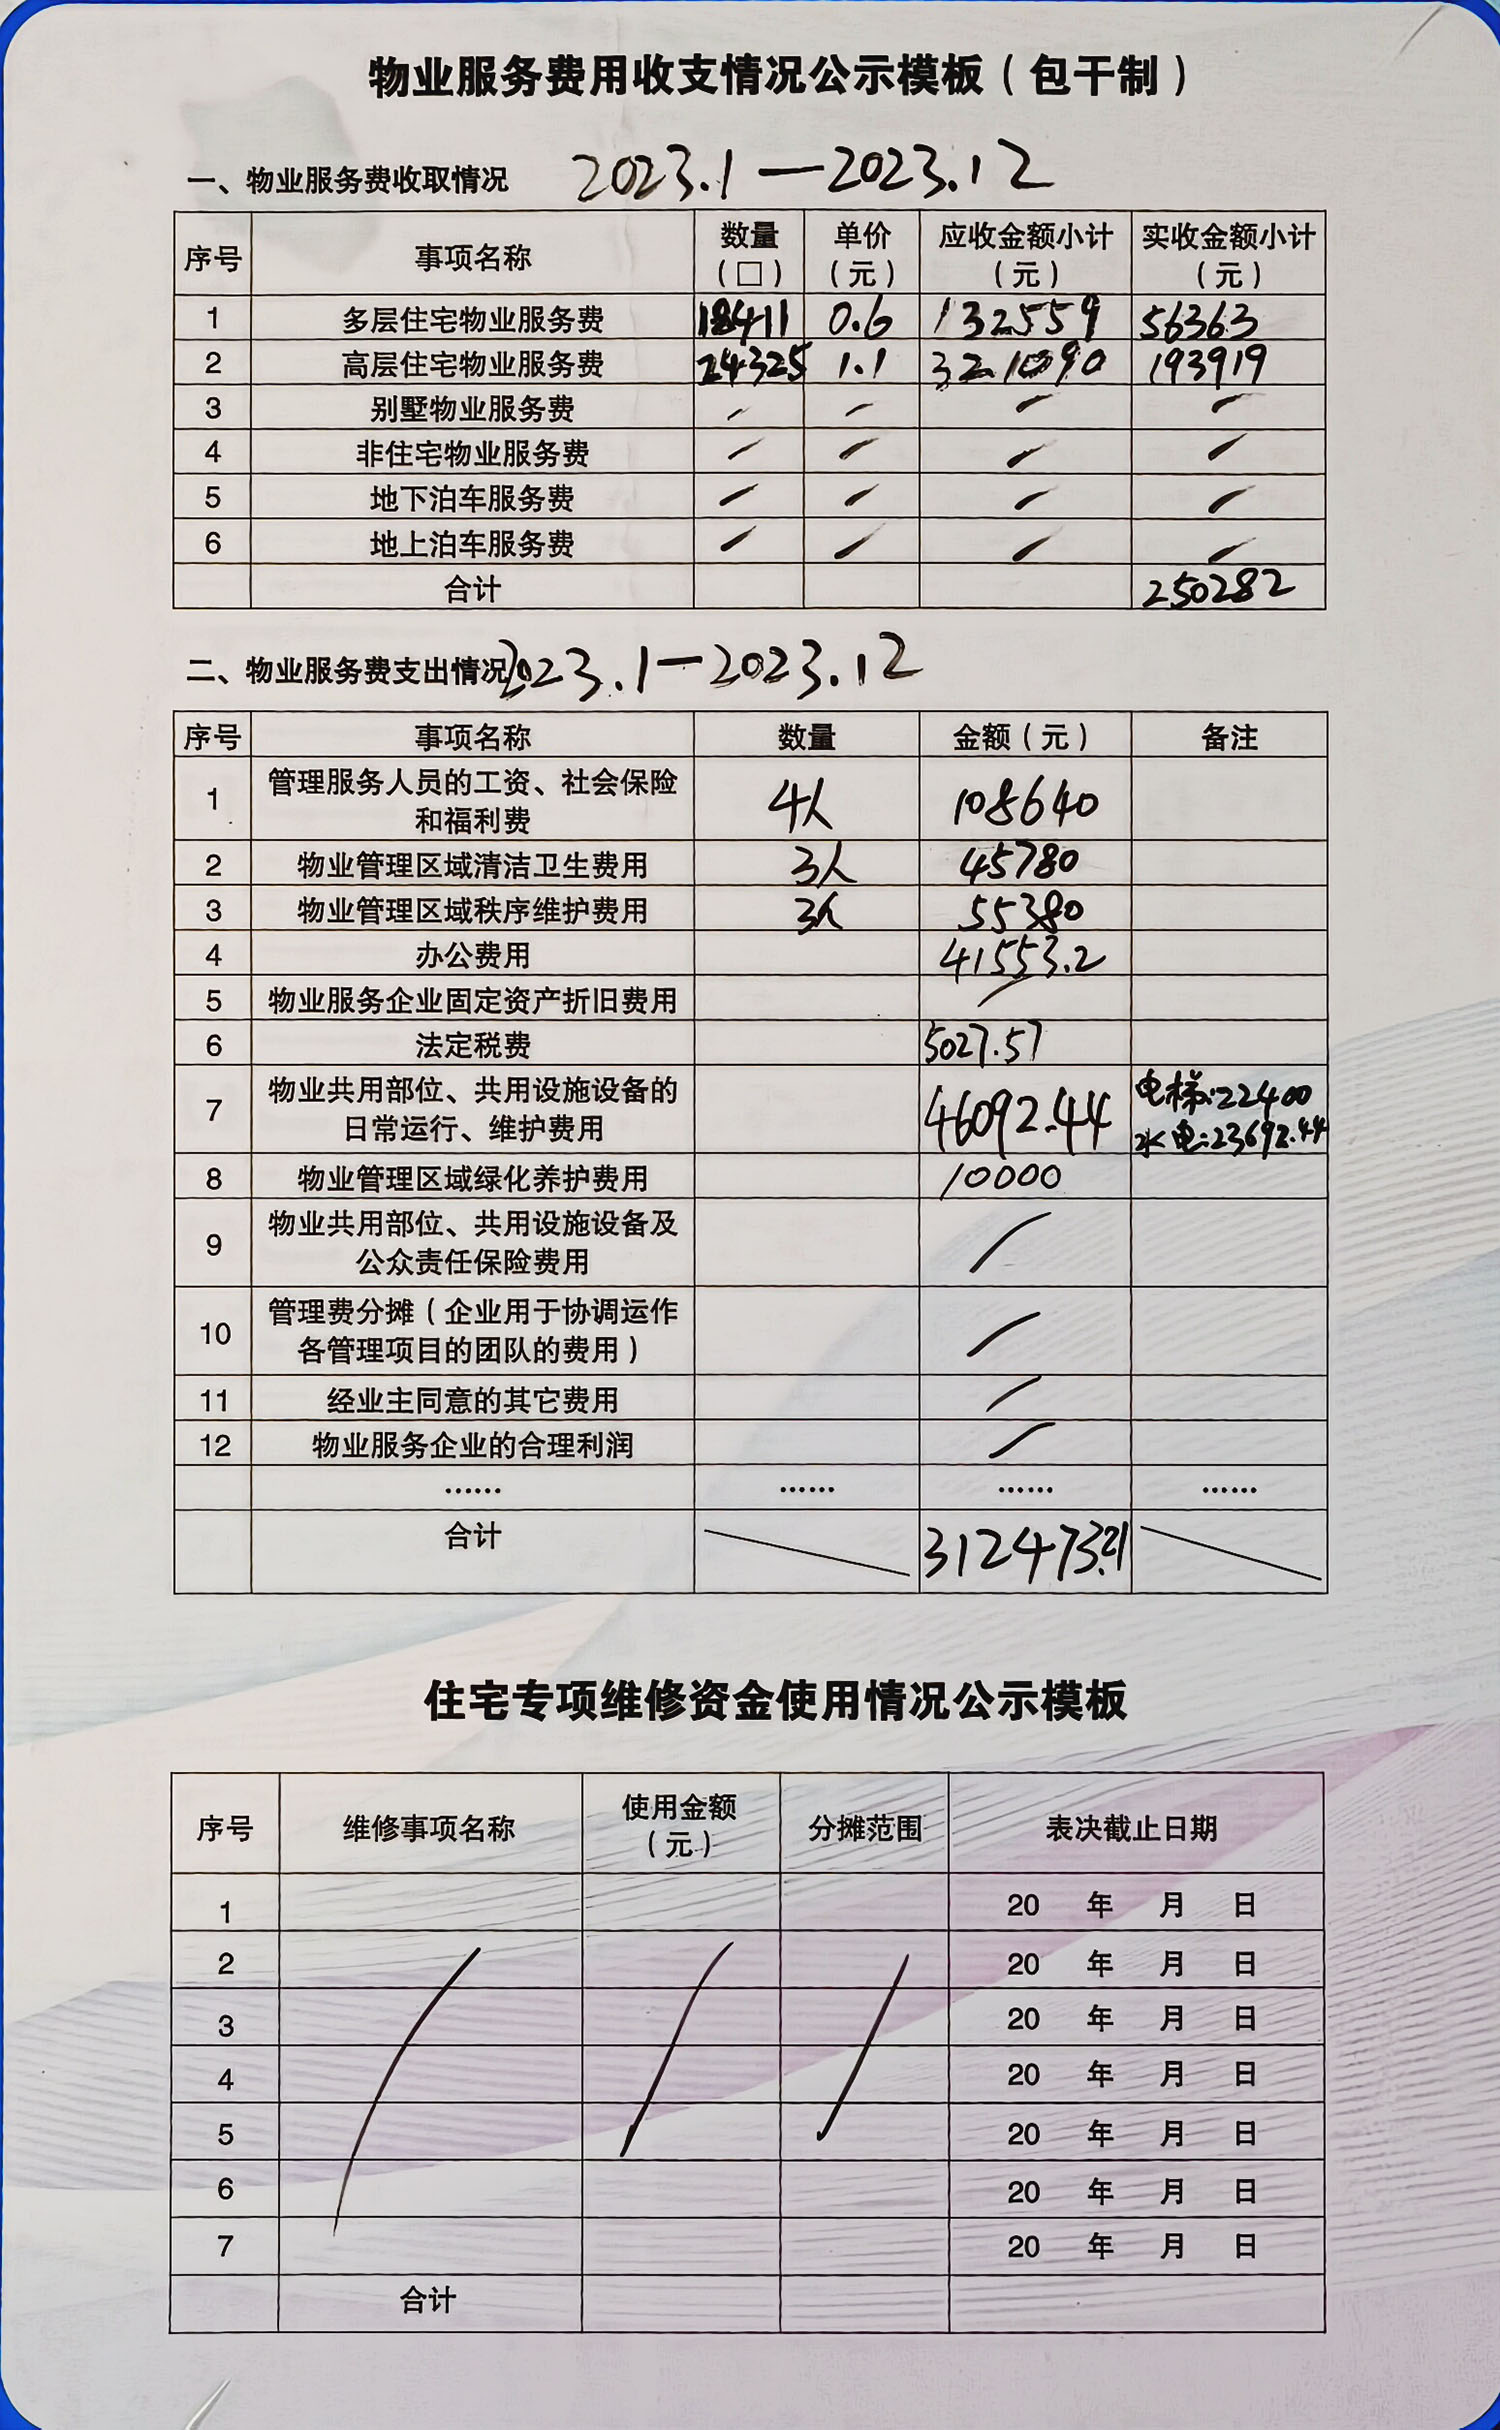 物业服务费用收支情况公示模板（包干制）
一、物业服务费收取情况 2023.1—2023.12
序号 事项名称 数量（□） 单价（元） 应收金额小计（元） 实收金额小计（元）
1 多层住宅物业服务费 18411 0.6 132559 56363
2 高层住宅物业服务费 24325 1.1 321090 193919
3 别墅物业服务费 / / / /
4 非住宅物业服务费 / / / /
5 地下泊车服务费 / / / /
6 地上泊车服务费 / / / /
合计 250282
二、物业服务费支出情况 2023.1—2023.12
序号 事项名称 数量 金额（元） 备注
1 管理服务人员的工资、社会保险和福利费 4人 108640
2 物业管理区域清洁卫生费用 3人 45780
3 物业管理区域秩序维护费用 3人 55380
4 办公费用 41553.2
5 物业服务企业固定资产折旧费用 /
6 法定税费 5027.57
7 物业共用部位、共用设施设备的日常运行、维护费用 46092.44 电梯:22400 水电:23692.44
8 物业管理区域绿化养护费用 10000
9 物业共用部位、共用设施设备及公众责任保险费用 /
10 管理费分摊（企业用于协调运作各管理项目的团队的费用） /
11 经业主同意的其它费用 /
12 物业服务企业的合理利润 /
…… …… …… ……
合计 312473.21
住宅专项维修资金使用情况公示模板
序号 维修事项名称 使用金额（元） 分摊范围 表决截止日期
1 20 年 月 日
2 20 年 月 日
3 20 年 月 日
4 20 年 月 日
5 20 年 月 日
6 20 年 月 日
7 20 年 月 日
合计